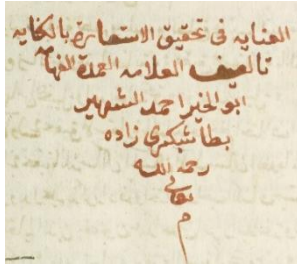 العنايه فى تحقيق الاستعارة بالكنايه
تاليف العلامه العمدة الفهامه
ابو الخير احمد الشهير
بطاشكبرى زاده
رحمه الله
تعالى
م